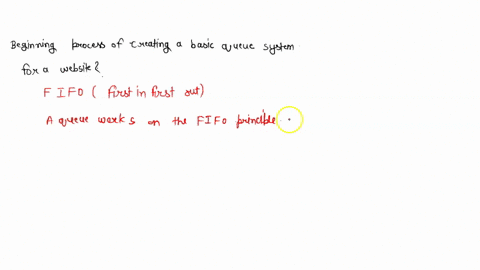 Beginning process of creating a basic queue system
for a website?
FIFO ( First in first out)
A queue works on the FIFO principle.